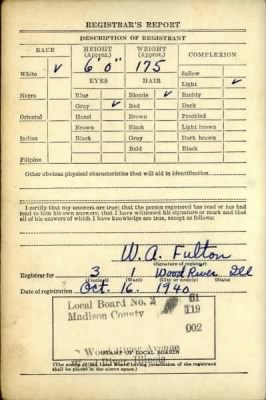 REGISTRAR'S REPORT
DESCRIPTION OF REGISTRANT
RACE HEIGHT (Approx.) WEIGHT (Approx.) COMPLEXION
6' 0" 175
White ✓ Sallow
EYES HAIR Light ✓
Negro Blue Blonde ✓ Ruddy
Gray ✓ Red Dark
Oriental Hazel Brown Freckled
Brown Black Light brown
Indian Black Gray Dark brown
Bald Black
Filipino
Other obvious physical characteristics that will aid in identification
I certify that my answers are true; that the person registered has read or has
read to him his own answers; that I have witnessed his signature or mark and that
all of his answers of which I have knowledge are true, except as follows:
W. A. Fulton
(Signature of registrar)
Registrar for 3 1 Wood River Ill
(Precinct) (Ward) (City or county) (State)
Date of registration Oct. 16 1940
Local Board No. 2 61
Madison County 119
002
Wood River Avenue
Wood River, Illinois
(STAMP OF LOCAL BOARD)
(The stamp of the Local Board having jurisdiction of the registrant
shall be placed in the above space.)